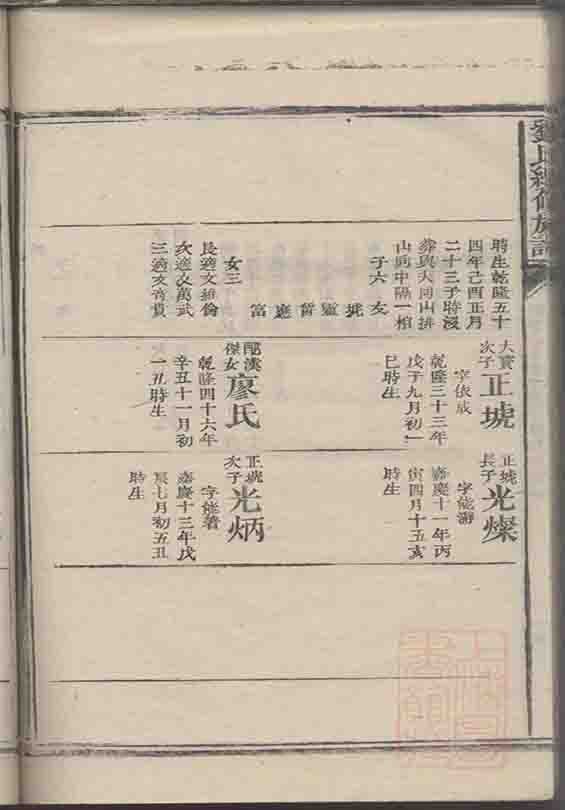 劉氏續修族譜
時生乾隆五十
四年己酉正月
二十三子時沒
葬與夫同山排
山丙中隔一棺
子六
女三
長適文維倫
次適文萬武
三適文
大賓
次子
正琥
字依成
乾隆三十三年
戊子九月初一
巳時生
配漢
傑女
廖氏
乾隆四十六年
辛丑十一月初
一丑時生
正琥
長子
光燦
字能游
嘉慶十一年丙
寅四月十五亥
時生
正琥
次子
光炳
字能着
嘉慶十三年戊
辰七月初五丑
時生